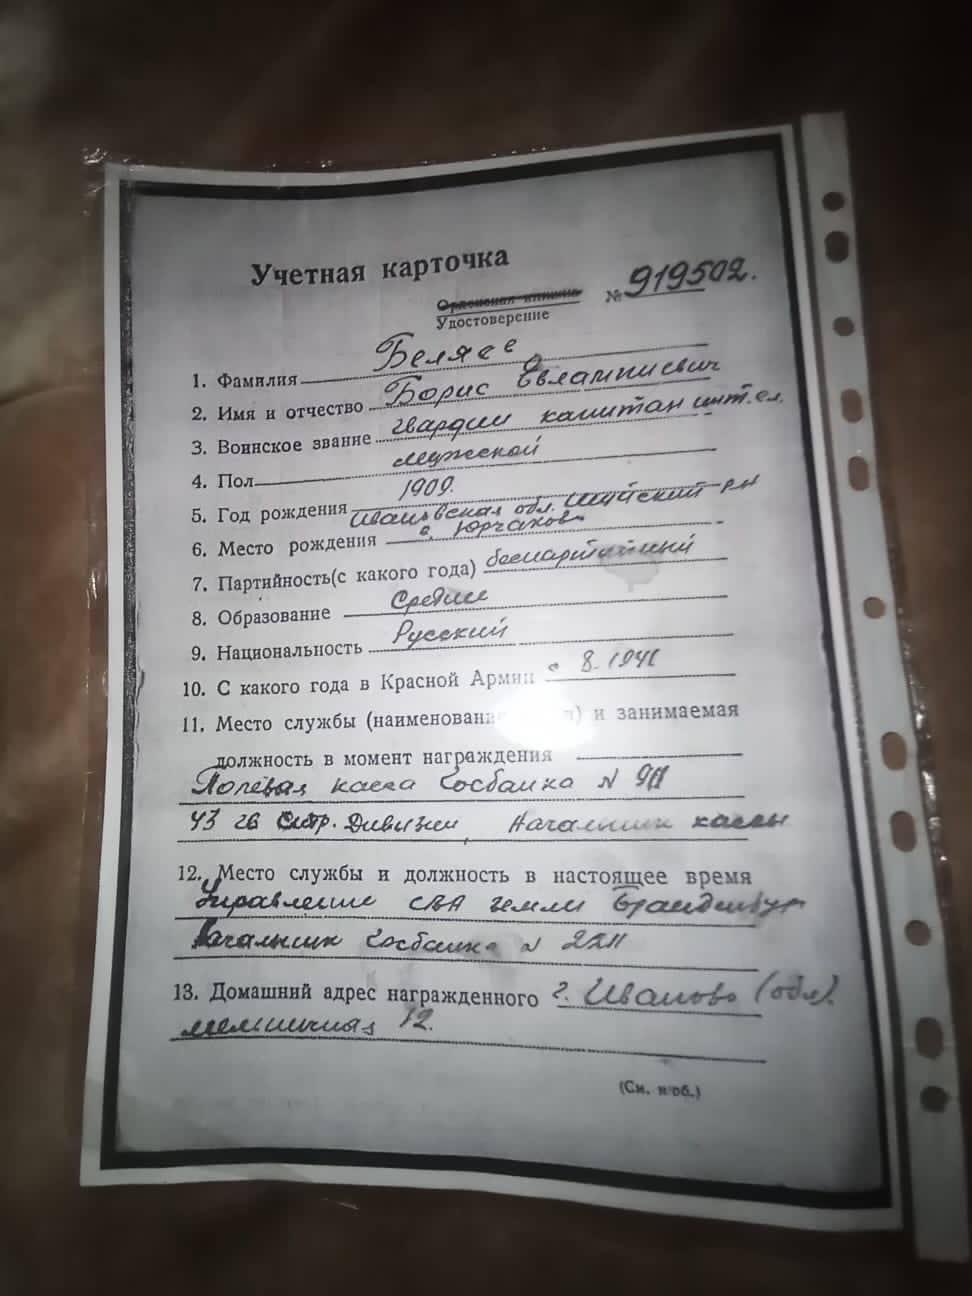 Учетная карточка
Орденская книжка
Удостоверение
№ 919502.
1. Фамилия Беляев
2. Имя и отчество Борис Евлампиевич
3. Воинское звание гвардии капитан инт. сл.
4. Пол мужской
5. Год рождения 1909.
Ивановская обл. Шуйский р-н
6. Место рождения с.
7. Партийность(с какого года) беспартийный
8. Образование Среднее
9. Национальность Русский
10. С какого года в Красной Армии с 8. 1941
11. Место службы (наименование и занимаемая
должность в момент награждения
Полевая касса Госбанка N
43 гв Стр. Дивизии, Начальник кассы
12. Место службы и должность в настоящее время
Управление СВА земли Бранденбург
Начальник Госбанка N
13. Домашний адрес награжденного г. Иваново (обл).
12.
(См. н/об.)